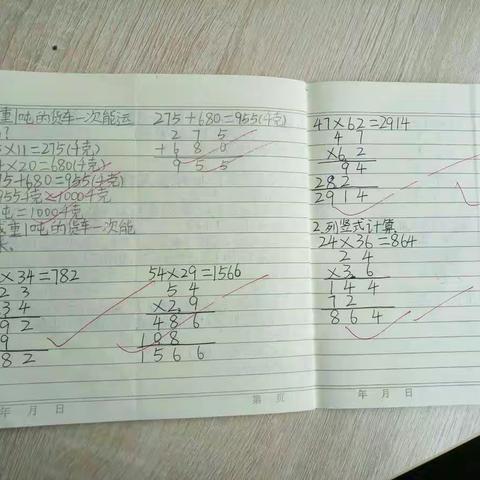 重1吨的货车一次能运
?
×11=275(千克)
×20=680(千克)
75+680=955(千克)
955千克≥1000千克
吨=1000千克
重1吨的货车一次能
275+680=955(千克)
2 7 5
+ 6 8 0
9 5 5
×34=782
2 3
3 4
9 2
9
8 2
54×29=1566
5 4
×2 9
4 8 6
1 0 8
1 5 6 6
年 月 日
第 页
47×62=2914
4 7
×6 2
9 4
2 8 2
2 9 1 4
2.列竖式计算
24×36=864
2 4
×3 6
1 4 4
7 2
8 6 4
年 月 日